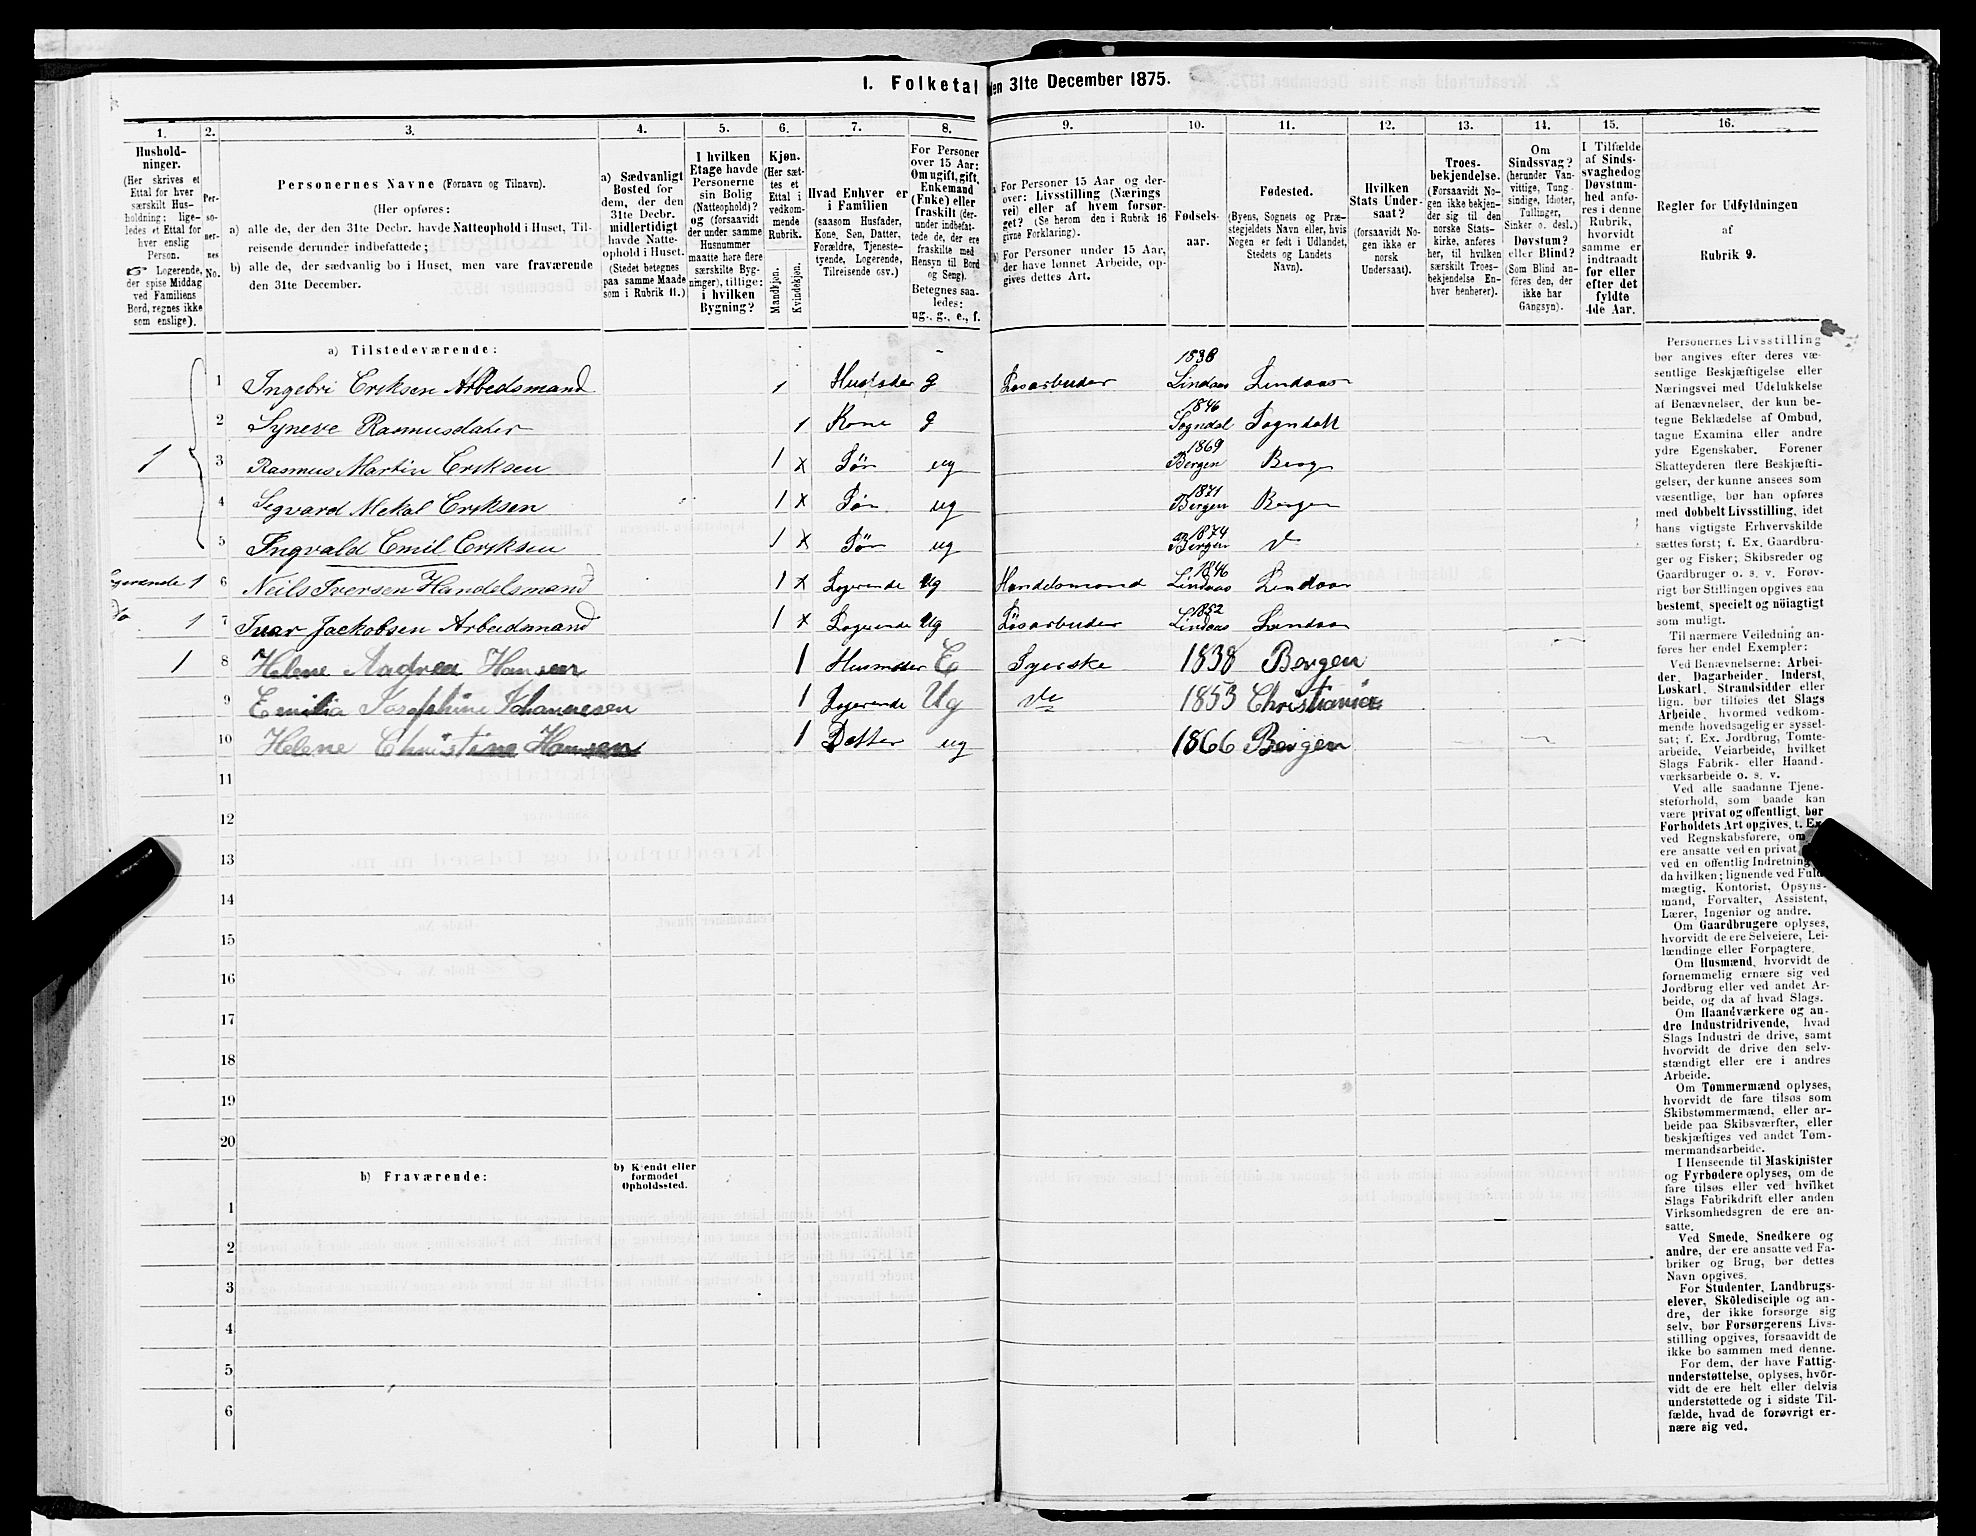 1. Folketal den 31te December 1875.
1. 2. 3. 4. 5. 6. 7. 8. 9. 10. 11. 12. 13. 14. 15. 16.
Hushold-
ninger.
(Her skrives et
Ettal for hver
særskilt Hus-
holdning; lige-
ledes et Ettal for
hver enslig
Person.
☞ Logerende,
der spise Middag
ved Familiens
Bord, regnes ikke
som enslige).
Per-
so-
ner-
nes
No.
Personernes Navne (Fornavn og Tilnavn).
(Her opføres:
a) alle de, der den 31te Decbr. havde Natteophold i Huset, Til-
reisende derunder indbefattede;
b) alle de, der sædvanlig bo i Huset, men vare fraværende
den 31te December.
a) Sædvanligt
Bosted for
dem, der den
31te Decbr.
midlertidigt
havde Natte-
ophold i Huset.
(Stedet betegnes
paa samme Maade
som i Rubrik 11.)
I hvilken
Etage havde
Personerne
sin Bolig
(Natteophold)?
og (forsaavidt
der under samme
Husnummer
maatte høre flere
særskilte Byg-
ninger), tillige:
i hvilken
Bygning?
Kjøn.
(Her sæt-
tes et
Ettal i
vedkom-
mende
Rubrik.
Mandkjøn.
Kvindekjøn.
Hvad Enhver er
i Familien
(saasom Husfader,
Kone, Søn, Datter,
Forældre, Tjeneste-
tyende, Logerende,
Tilreisende osv.)
For Personer
over 15 Aar:
Om ugift, gift,
Enkemand
(Enke) eller
fraskilt (der-
under indbefat-
tede de, der ere
fraskilte med
Hensyn til Bord
og Seng).
Betegnes saa-
ledes:
ug., g., e., f.
a) For Personer 15 Aar og der-
over: Livsstilling (Nærings-
vei) eller af hvem forsør-
get? (Se herom den i Rubrik 16
givne Forklaring).
b) For Personer under 15 Aar,
der have lønnet Arbeide, op-
gives dettes Art.
Fødsels-
aar.
Fødested.
(Byens, Sognets og Præ-
stegjeldets Navn eller, hvis
Nogen er født i Udlandet,
Stedets og Landets
Navn).
Hvilken
Stats Under-
saat?
(forsaavidt No-
gen ikke er
norsk
Undersaat).
Troes-
bekjendelse.
(Forsaavidt No-
gen ikke bekjen-
der sig til den
norske Stats-
kirke, anføres
her, til hvilken
særskilt Troes-
bekjendelse En-
hver henhører).
Om
Sindssvag?
(herunder Van-
vittige, Tung-
sindige, Idioter,
Tullinger,
Sinker o. desl.)
Døvstum?
eller Blind?
(Som Blind an-
føres den, der
ikke har
Gangsyn).
I Tilfælde
af Sinds-
svaghed og
Døvstum-
hed anfø-
res i denne
Rubrik,
hvorvidt
samme er
indtraadt
før eller
efter det
fyldte
4de Aar.
Regler for Udfyldningen
af
Rubrik 9.
a) Tilstedeværende:
1 Ingebri Eriksen Arbedsmand 1 Husfader g Løsarbuder 1838 Lindaas Lindaas
2 Syneve Rasmusdater 1 Kone g 1846 Sogndal Sogndall
1 3 Rasmus Martin Eriksen 1 x Søn ug 1869 Bergen Berge
4 Segvard Mekal Eriksen 1 x Søn ug 1871 Bergen Bergen
5 Ingvald Emil Eriksen 1 x Søn ug 1874 Bergen
Logerende 1 6 Neils Iversen Handelsmand 1 x Logerende Ug Handelsmand 1846 Lindaas Lindaas
do 1 7 Ivar Jackobsen Arbeidsmand 1 x Logerende Ug Løsarbuder 1852 Lindaas Lindaas
1 8 Helene Andrea Hansen 1 Husmoder E Syerske 1838 Bergen
9 Emilia Josephine Johannesen 1 Logerende Ug 1853 Christiania
10 Helene Christine Hansen 1 Datter ug 1866 Bergen
11
12
13
14
15
16
17
18
19
20
b) Fraværende:
b) Kjendt eller
formodet
Opholdssted.
1
2
3
4
5
6
Personernes Livsstilling
bør angives efter deres væ-
sentlige Beskjæftigelse eller
Næringsvei med Udelukkelse
af Benævnelser, der kun be-
tegne Beklædelse af Ombud,
tagne Examina eller andre
ydre Egenskaber. Forener
Skatteyderen flere Beskjæfti-
gelser, der kunne ansees som
væsentlige, bør han opføres
med dobbelt Livsstilling, idet
hans vigtigste Erhvervskilde
sættes først; f. Ex. Gaardbru-
ger og Fisker; Skibsreder og
Gaardbruger o. s. v. Forøv-
rigt bør Stillingen opgives saa
bestemt, specielt og nöiagtigt
som muligt.
Til nærmere Veiledning an-
føres her endel Exempler:
Ved Benævnelserne: Arbei-
der, Dagarbeider, Inderst,
Løskarl, Strandsidder eller
lign. bør tilføies det Slags
Arbeide, hvormed vedkom-
mende hovedsagelig er syssel-
sat; f. Ex. Jordbrug, Tomte-
arbeide, Veiarbeide, hvilket
Slags Fabrik- eller Haand-
værksarbeide o. s. v.
Ved alle saadanne Tjene-
steforhold, som baade kan
være privat og offentligt, bør
Forholdets Art opgives, t. Ex.
ved Regnskabsførere, om de
ere ansatte ved en privat eller
ved en offentlig Indretning og
da hvilken; lignende ved Fuld-
mægtig, Kontorist, Opsyns-
mand, Forvalter, Assistent,
Lærer, Ingeniør og andre.
Om Gaardbrugere oplyses,
hvorvidt de ere Selveiere, Lei-
lændinge eller Forpagtere.
Om Husmænd, hvorvidt de
fornemmelig ernære sig ved
Jordbrug eller ved andet Ar-
beide, og da af hvad Slags.
Om Haandværkere og an-
dre Industridrivende, hvad
Slags Industri de drive, samt
hvorvidt de drive den selv-
stændigt eller ere i andres
Arbeide.
Om Tømmermænd oplyses,
hvorvidt de fare tilsøs som
Skibstømmermænd, eller ar-
beide paa Skibsværfter, eller
beskjæftiges ved andet Tøm-
mermandsarbeide.
I Henseende til Maskinister
og Fyrbødere oplyses, om de
fare tilsøs eller ved hvilket
Slags Fabrikdrift eller anden
Virksomhedsgren de ere an-
satte.
Ved Smede, Snedkere og
andre, der ere ansatte ved Fa-
briker og Brug, bør dettes
Navn opgives.
For Studenter, Landbrugs-
elever, Skoledisciple og an-
dre, der ikke forsørge sig
selv, bør Forsørgerens Livs-
stilling opgives, forsaavidt de
ikke bo sammen med denne.
For dem, der have Fattig-
understøttelse, oplyses, hvor-
vidt de ere helt eller delvis
understøttede og i sidste Til-
fælde, hvad de forøvrigt er-
nære sig ved.